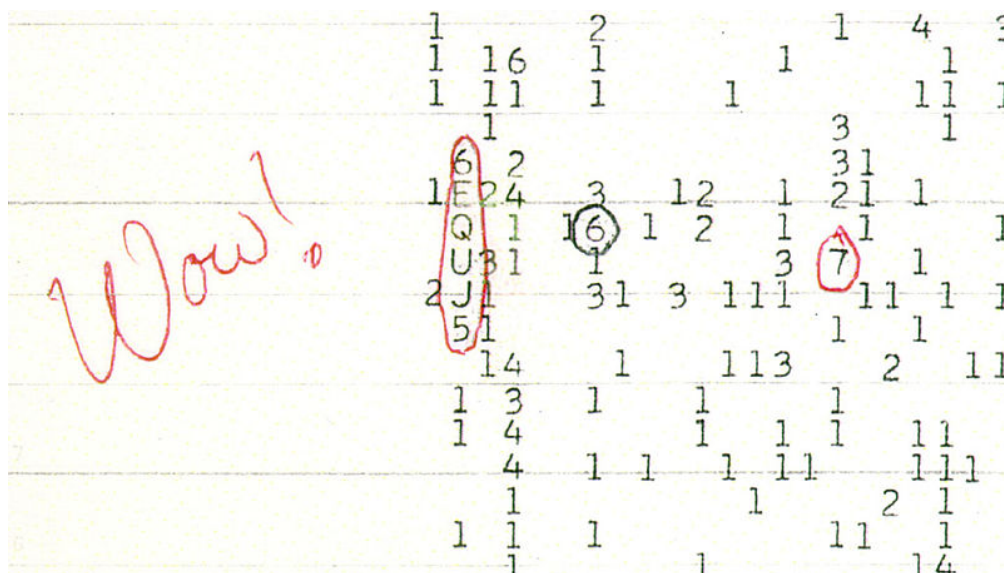 1 2 1 4 3
1 16 1 1 1
1 11 1 1 11 1
1 3 1
6 2 31
1E24 3 12 1 21 1
Q 1 16 1 2 1 1 1
U31 1 3 7 1
2J1 31 3 111 11 1 1
51 1 1
14 1 113 2 11
1 3 1 1 1
1 4 1 1 1 11
4 1 1 1 11 111
1 1 2 1
1 1 1 11 1
1 1 14
Wow!